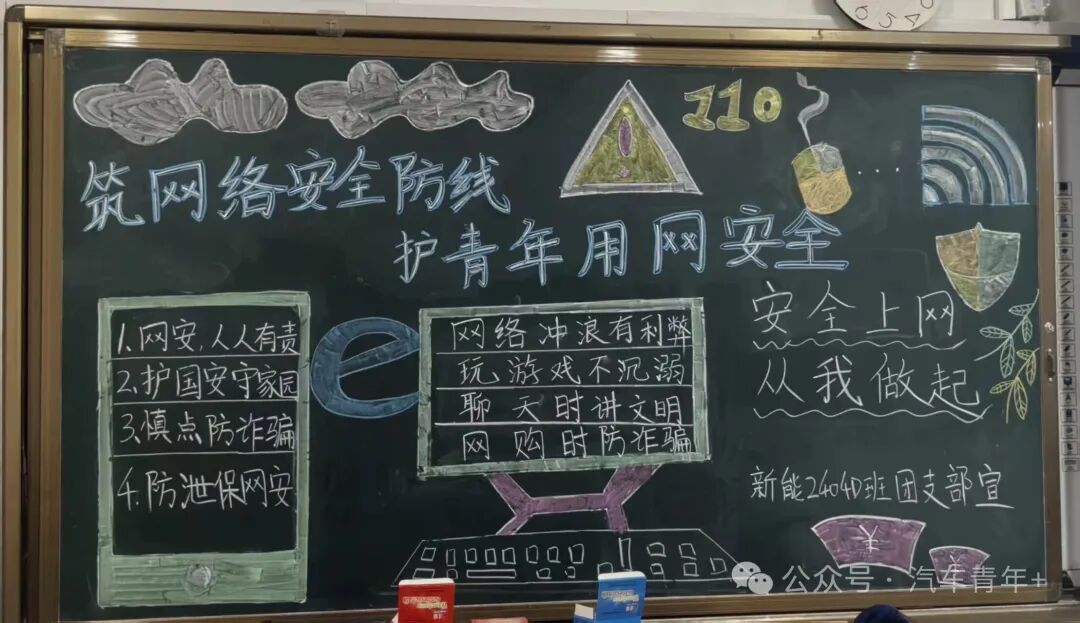 110
筑网络安全防线
护青年用网安全
1.网安,人人有责
2.护国安守家园
3.慎点防诈骗
4.防泄保网安
e
网络冲浪有利弊
玩游戏不沉溺
聊天时讲文明
网购时防诈骗
安全上网
从我做起
新能2404D班团支部宣
¥
¥
公众号·汽车青年+